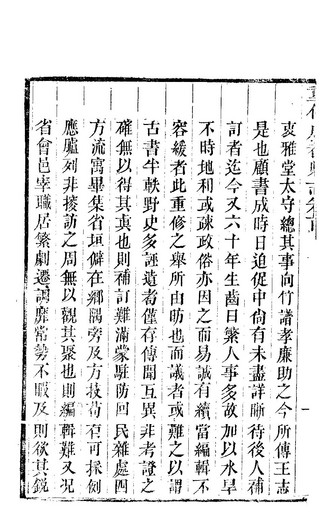 衷雅堂太守總其事向竹譜孝廉助之今所傳王志
是也顧書成時日迫促中尚有未盡詳晰待後人補
訂者迄今又六十年生齒日繁人事多故加以水旱
不時地利或有變政俗亦因之而易誠有續當編輯不
容緩者此重修之舉所由昉也而議者或難之以謂
古書半軼野史多誣遺者僅存傳聞互異非考證之
確無以得其真也則補訂難滿蒙駐防回民雜處四
方流寓畢集省垣僻在鄉隅旁及方技苟有可採例
應臚列非接訪之周無以觀其聚也則編輯難又況
省會邑宰職居繁劇遷調靡常勢不暇及則欲其銳